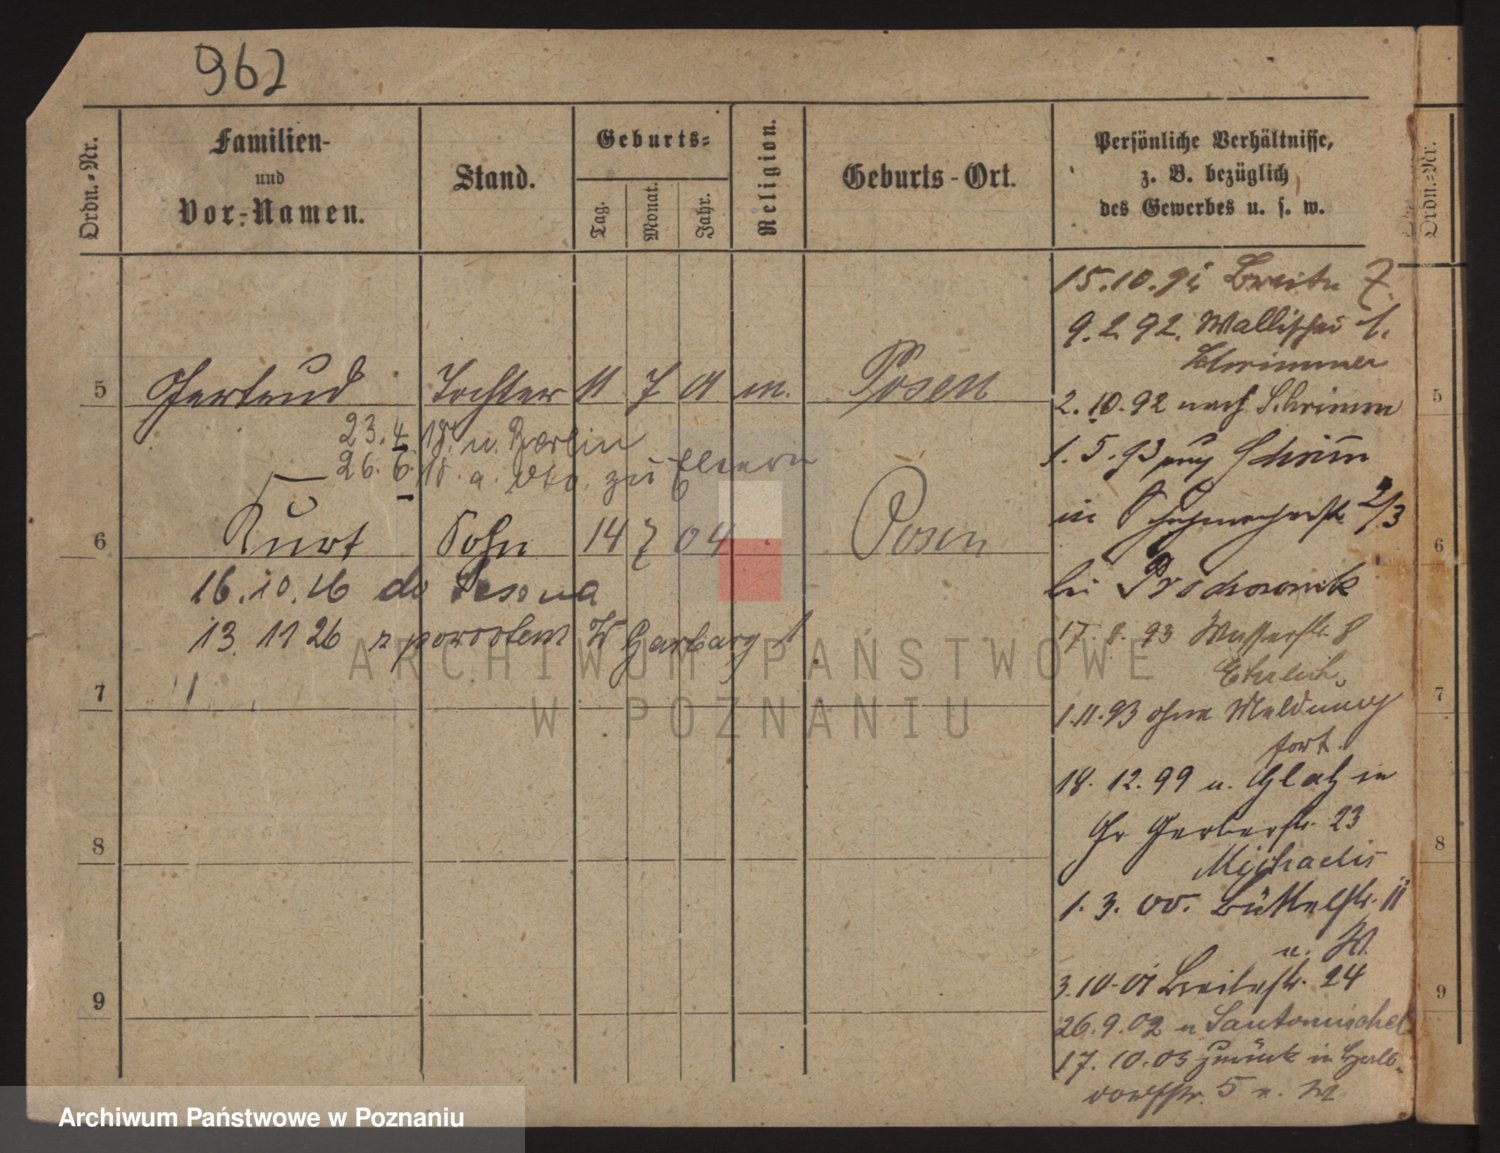 962
Ordn.-Nr.
Familien-
und
Vor-Namen.
Stand.
Geburts-
Tag.
Monat.
Jahr.
Religion.
Geburts-Ort.
Persönliche Verhältnisse,
z. B. bezüglich
des Gewerbes u. s. w.
Ordn.-Nr.
5 Gertrud Tochter 11 7 01 m. Posen
23.4.18. n. Berlin
26.6.18. a. zu Eltern
6 Kurt Sohn 14 7 04 Posen
16.10.16 do
13 11 26 z powrotem W Garbary 1
7
8
9
15.10.91 Breite 7.
9.2.92. Wallischei 1.
2.10.92 nach Schrimm
1.5.93 Schrimm
in Schuhmacherstr 2/3
bei
17.8.93 Wasserstr. 8
Ehrlich
1.11.93 ohne Meldung
fort.
18.12.99 u. Glatz in
Gr Gerberstr. 23
Michaelis
1.3.00. Büttelstr. 11
u. W
3.10.01 Breitestr. 24
26.9.02 n Santomischel
17.10.03 zurück in Halb-
dorfstr. 5 u. W
5
6
7
8
9
ARCHIWUM PAŃSTWOWE
W POZNANIU
Archiwum Państwowe w Poznaniu